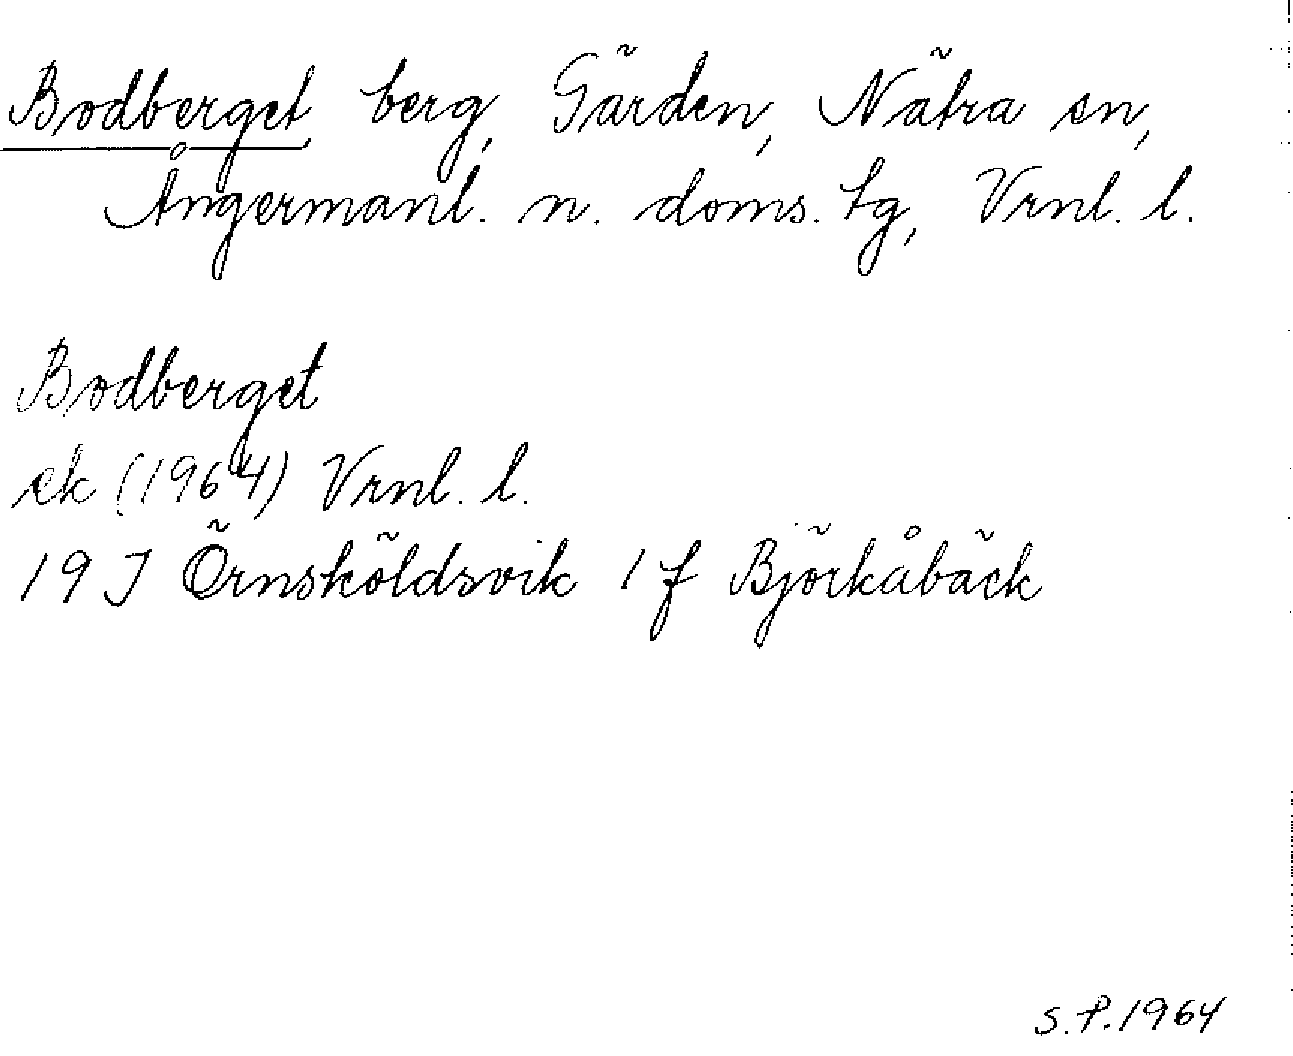 Bodberget, berg, Gärden, Nätra sn,
Ångermanl. n. doms. tg, Vrnl. l.
Bodberget
ek (1964) Vrnl. l.
19 J Örnsköldsvik 1 f Björkåbäck
S.P. 1964